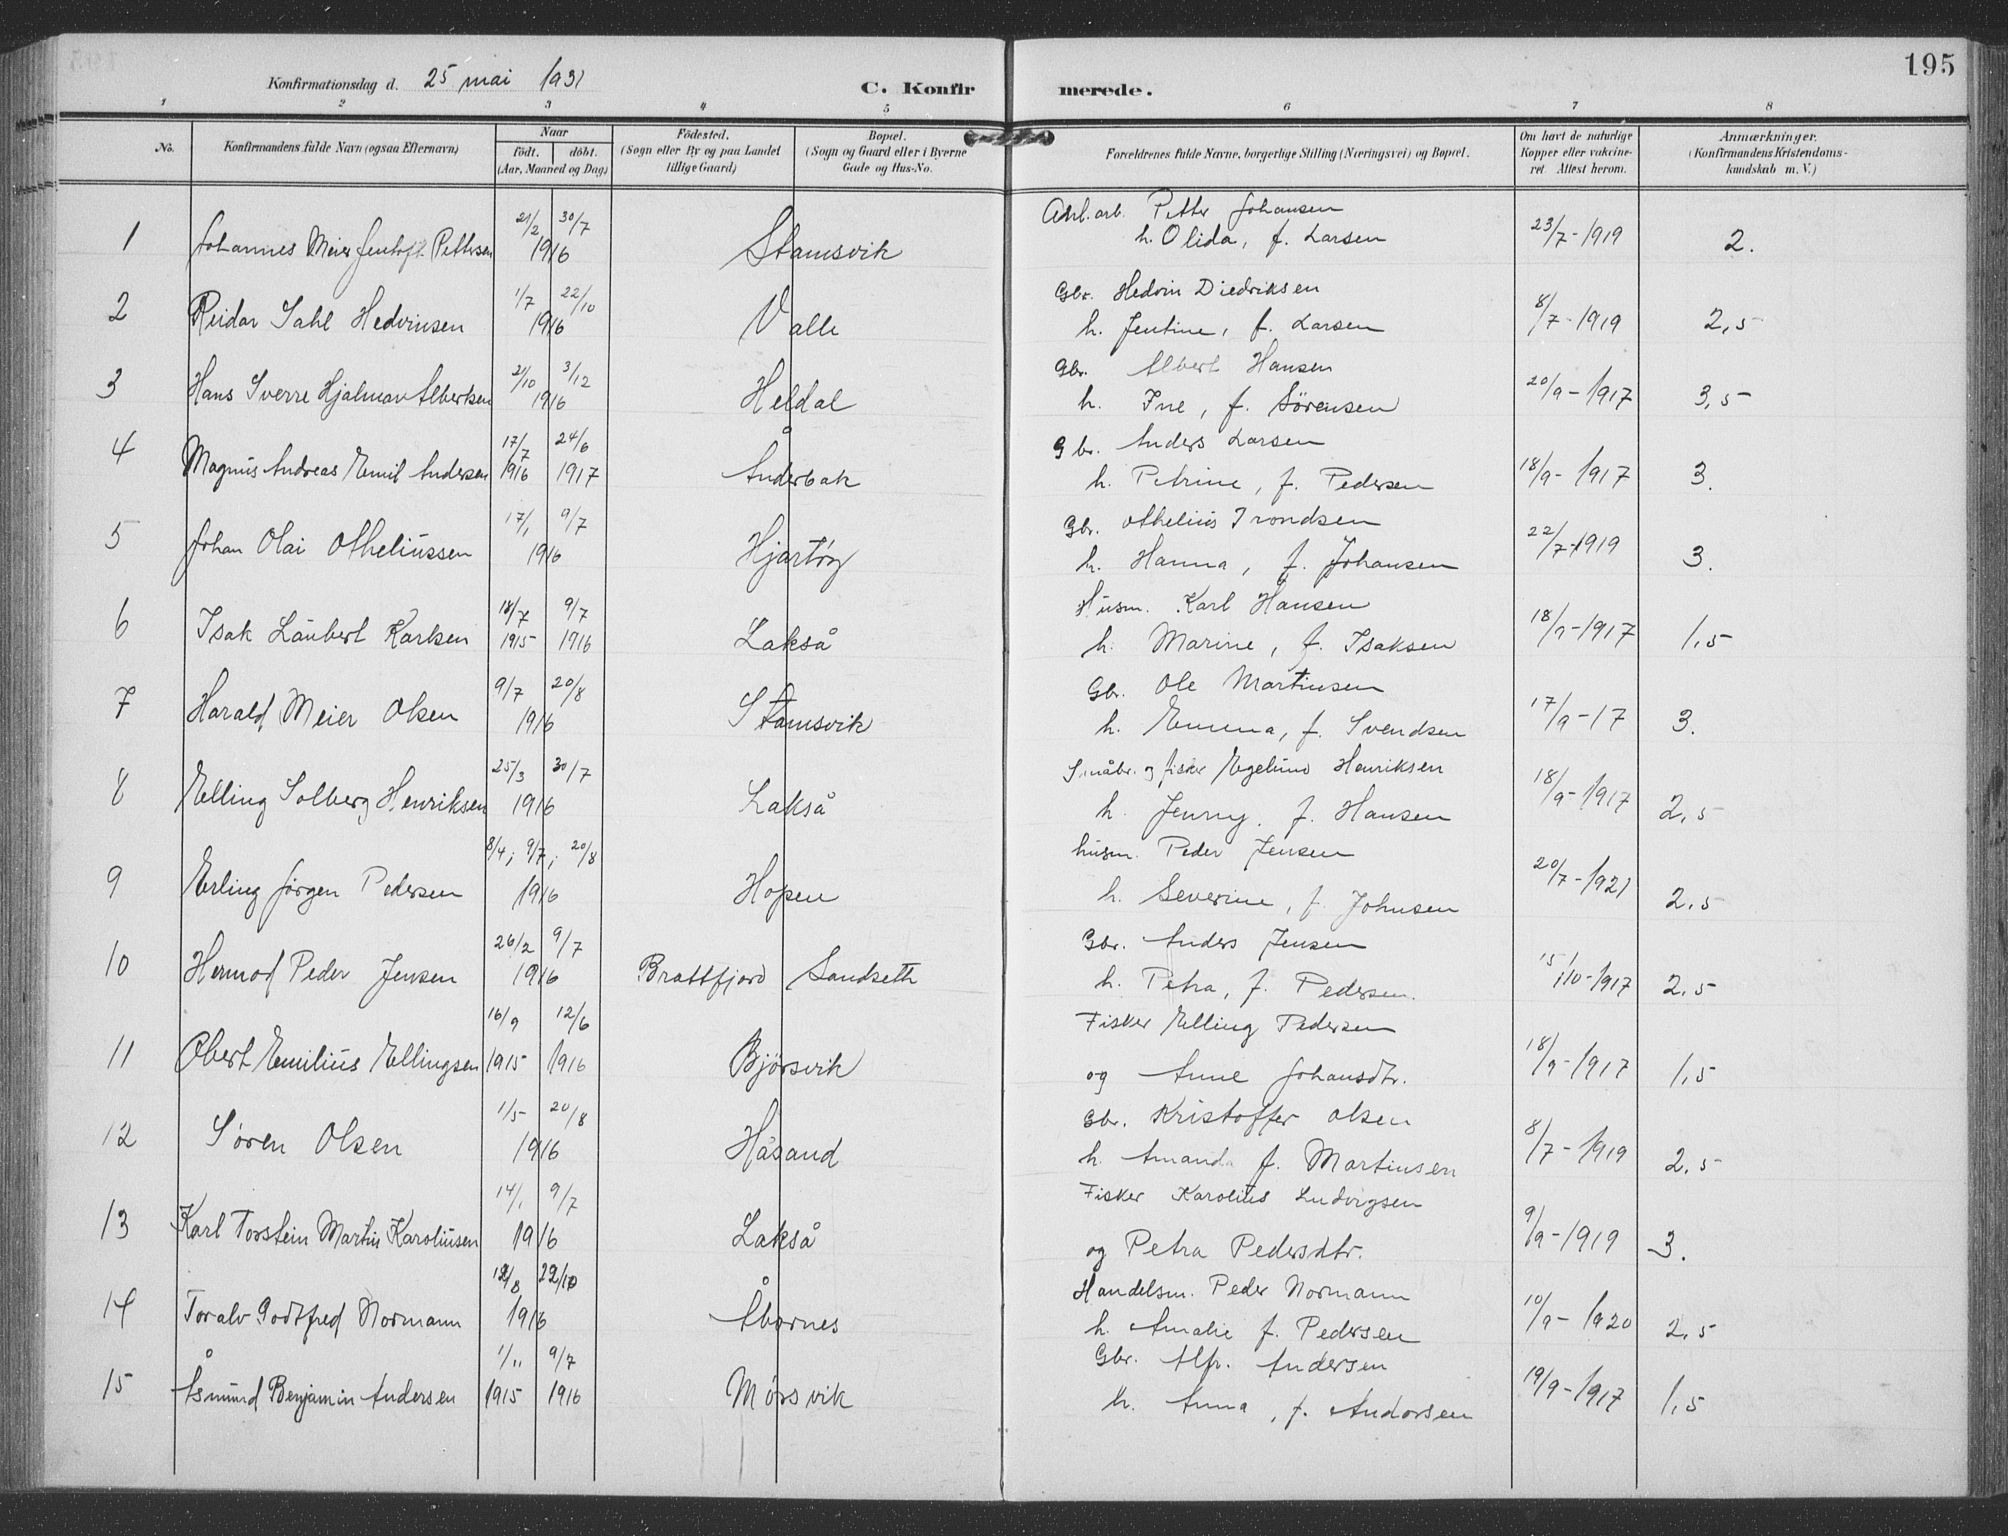 195
Konfirmationsdag d. 25 mai 1931
C. Konfirmerede.
1 2 3 4 5 6 7 8
No.
Konfirmandens fulde Navn (ogsaa Efternavn)
Naar
födt. döbt.
(Aar, Maaned og Dag)
Födested.
(Sogn eller By og paa Landet
tillige Gaard)
Bopæl.
(Sogn og Gaard eller i Byerne
Gade og Hus-No.
Forældrenes fulde Navne, borgerlige Stilling (Næringsvei) og Bopæl.
Om havt de naturlige
Kopper eller vakcine-
ret Attest herom.
Anmærkninger.
(Konfirmandens Kristendoms-
kundskab m. V.)
21/2 30/7 Petter Johansen
1 Johannes Meier Jentoft Pettersen 1916 Stamsvik h. Olida, f. Larsen 23/7-1919 2.
1/7 22/10 Gbr. Hedvin Diedriksen
2 Reidar Dahl Hedvinsen 1916 Valle h. Jentine, f. Larsen 8/7-1919 2,5
2/10 3/12 Gbr. Albert Hansen
3 Hans Sverre Hjalmar Albertsen 1916 Heldal h. Ine, f. Sörensen 20/9-1917 3,5
17/7 24/6 Gbr. Anders Larsen
4 Magnus Andreas Emil Andersen 1916 1917 Ånderbak h. Petrine, f. Pedersen 18/9-1917 3.
17/1 9/7 Gbr. Othelius Trondsen
5 Johan Olai Otheliussen 1916 Hjartøy h. Hanna, f. Johansen 22/7-1919 3.
18/7 9/7 Husm. Karl Hansen
6 Isak Laubert Karlsen 1915 1916 Lakså h. Marine, f. Isaksen 18/9-1917 1,5
9/7 20/8 Gbr. Ole Martinsen
7 Harald Meier Olsen 1916 Stamsvik h. Emma, f. Svendsen 17/9-17 3.
25/3 30/7 Småbr. og fisker Egelund Henriksen
8 Elling Solberg Henriksen 1916 Lakså h. Jenny f. Hansen 18/9-1917 2,5
8/4; 9/7; 20/8 husm. Peder Jensen
9 Erling Jørgen Pedersen 1916 Hopen h. Severine, f. Johnsen 20/7-1921 2,5
26/2 9/7 Gbr. Anders Jensen
10 Hermod Peder Jensen 1916 Brattfjord Sandseth h. Petra, f. Pedersen. 15/10-1917 2,5
16/9 12/6 Fisker Elling Pedersen
11 Obert Emilius Ellingsen 1915 1916 Bjørsvik og Anne Johansdtr. 18/9-1917 1,5
1/5 20/8 Gbr. Kristoffer Olsen
12 Søren Olsen 1916 Håsand h. Amanda f. Martinsen 8/7-1919 2,5
14/1 9/7 Fisker Karolius Ludvigsen
13 Karl Torstein Martin Karoliusen 1916 Lakså og Petra Pedersdtr. 9/9-1919 3.
22/10 Handelsm. Peder Normann
14 Toralv Godtfred Normann 1916 Åbornes h. Amalie f. Pedersen 10/9-1920 2,5
1/11 9/7 Gbr. Alfr. Andersen
15 Åsmund Benjamin Andersen 1915 1916 Mørsvik h. Anna, f. Andorsen 19/9-1917 1,5